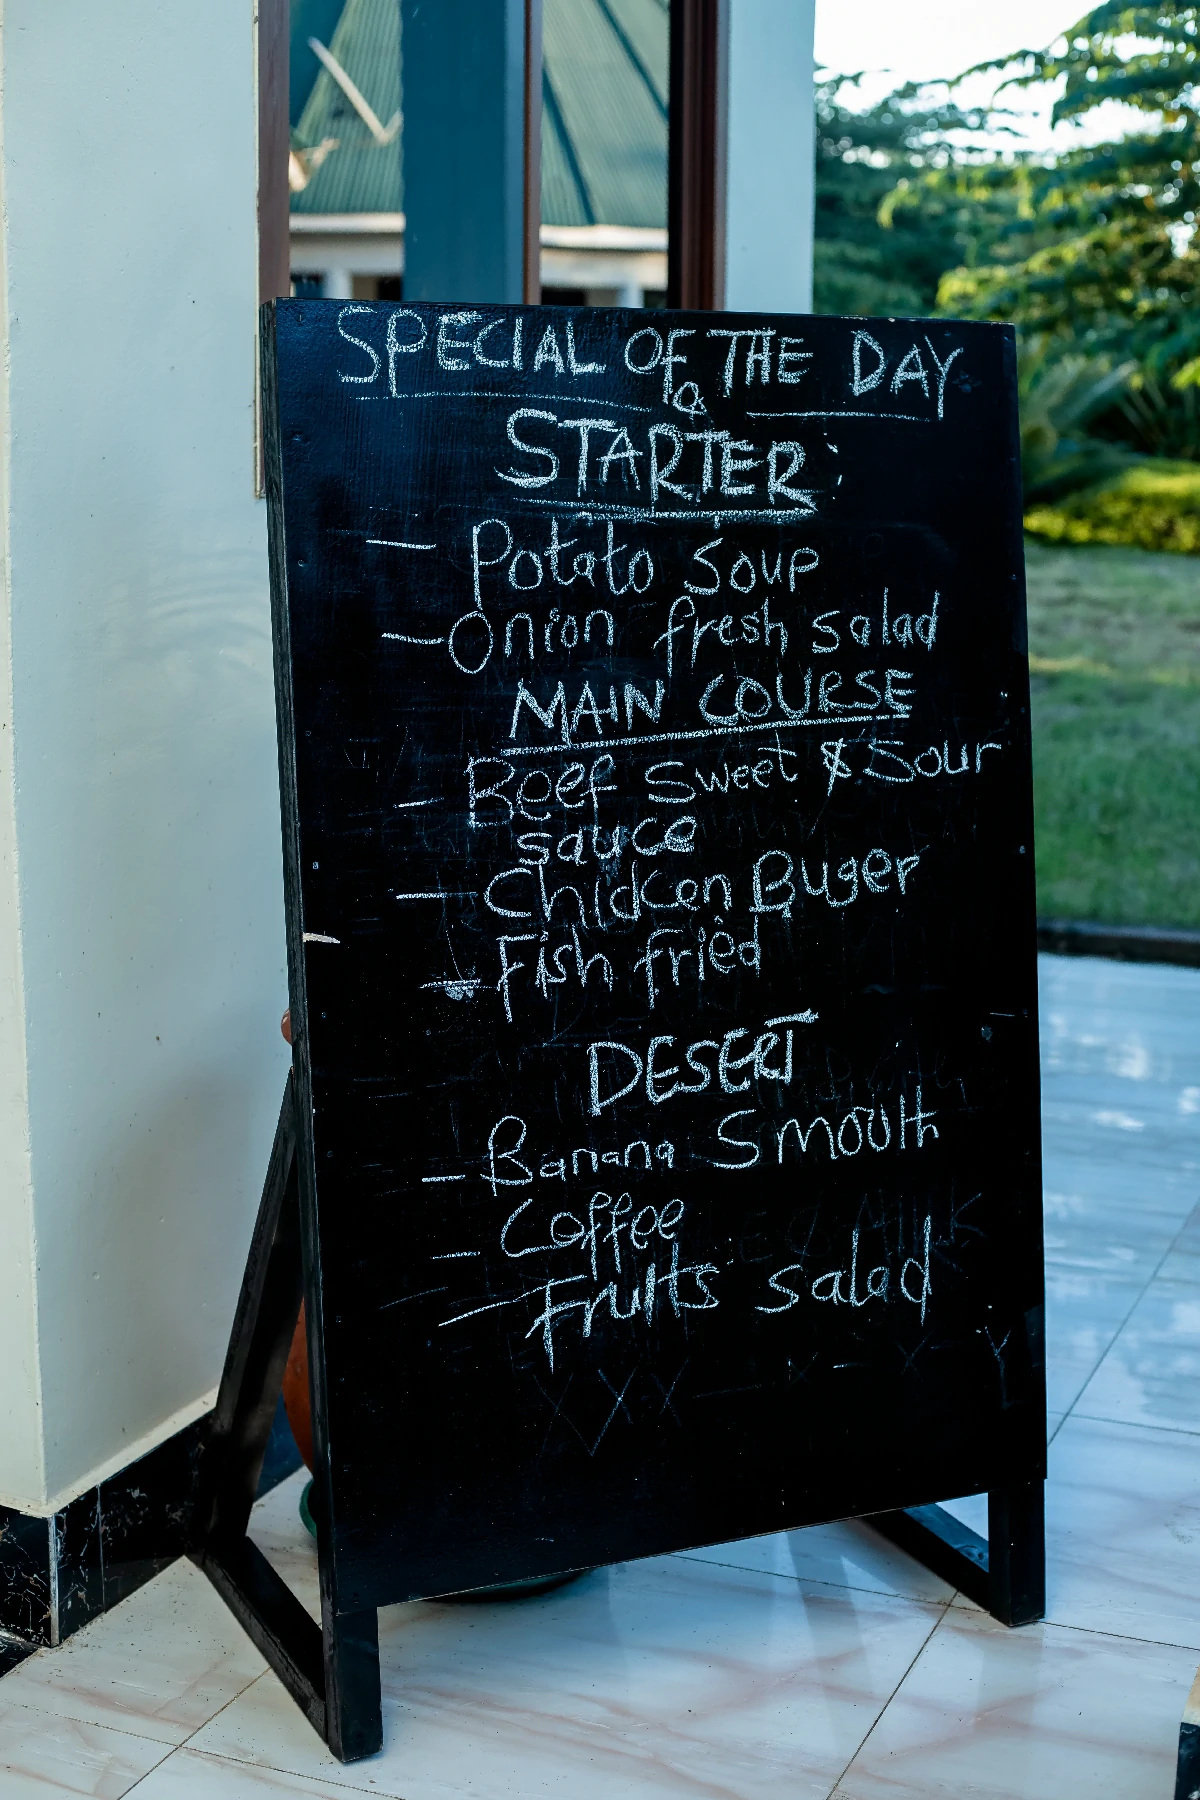 SPECIAL OF THE DAY
STARTER:
- Potato Soup
- Onion fresh salad
MAIN COURSE
- Beef Sweet & Sour
sauce
- Chicken Buger
- Fish fried
DESERT
- Banana Smooth
- Coffee
- Fruits salad